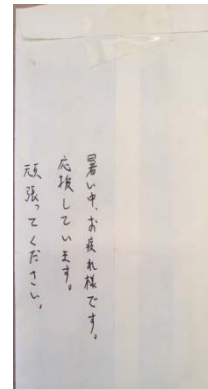 暑い中、お疲れ様です。
応援しています。
頑張ってください。